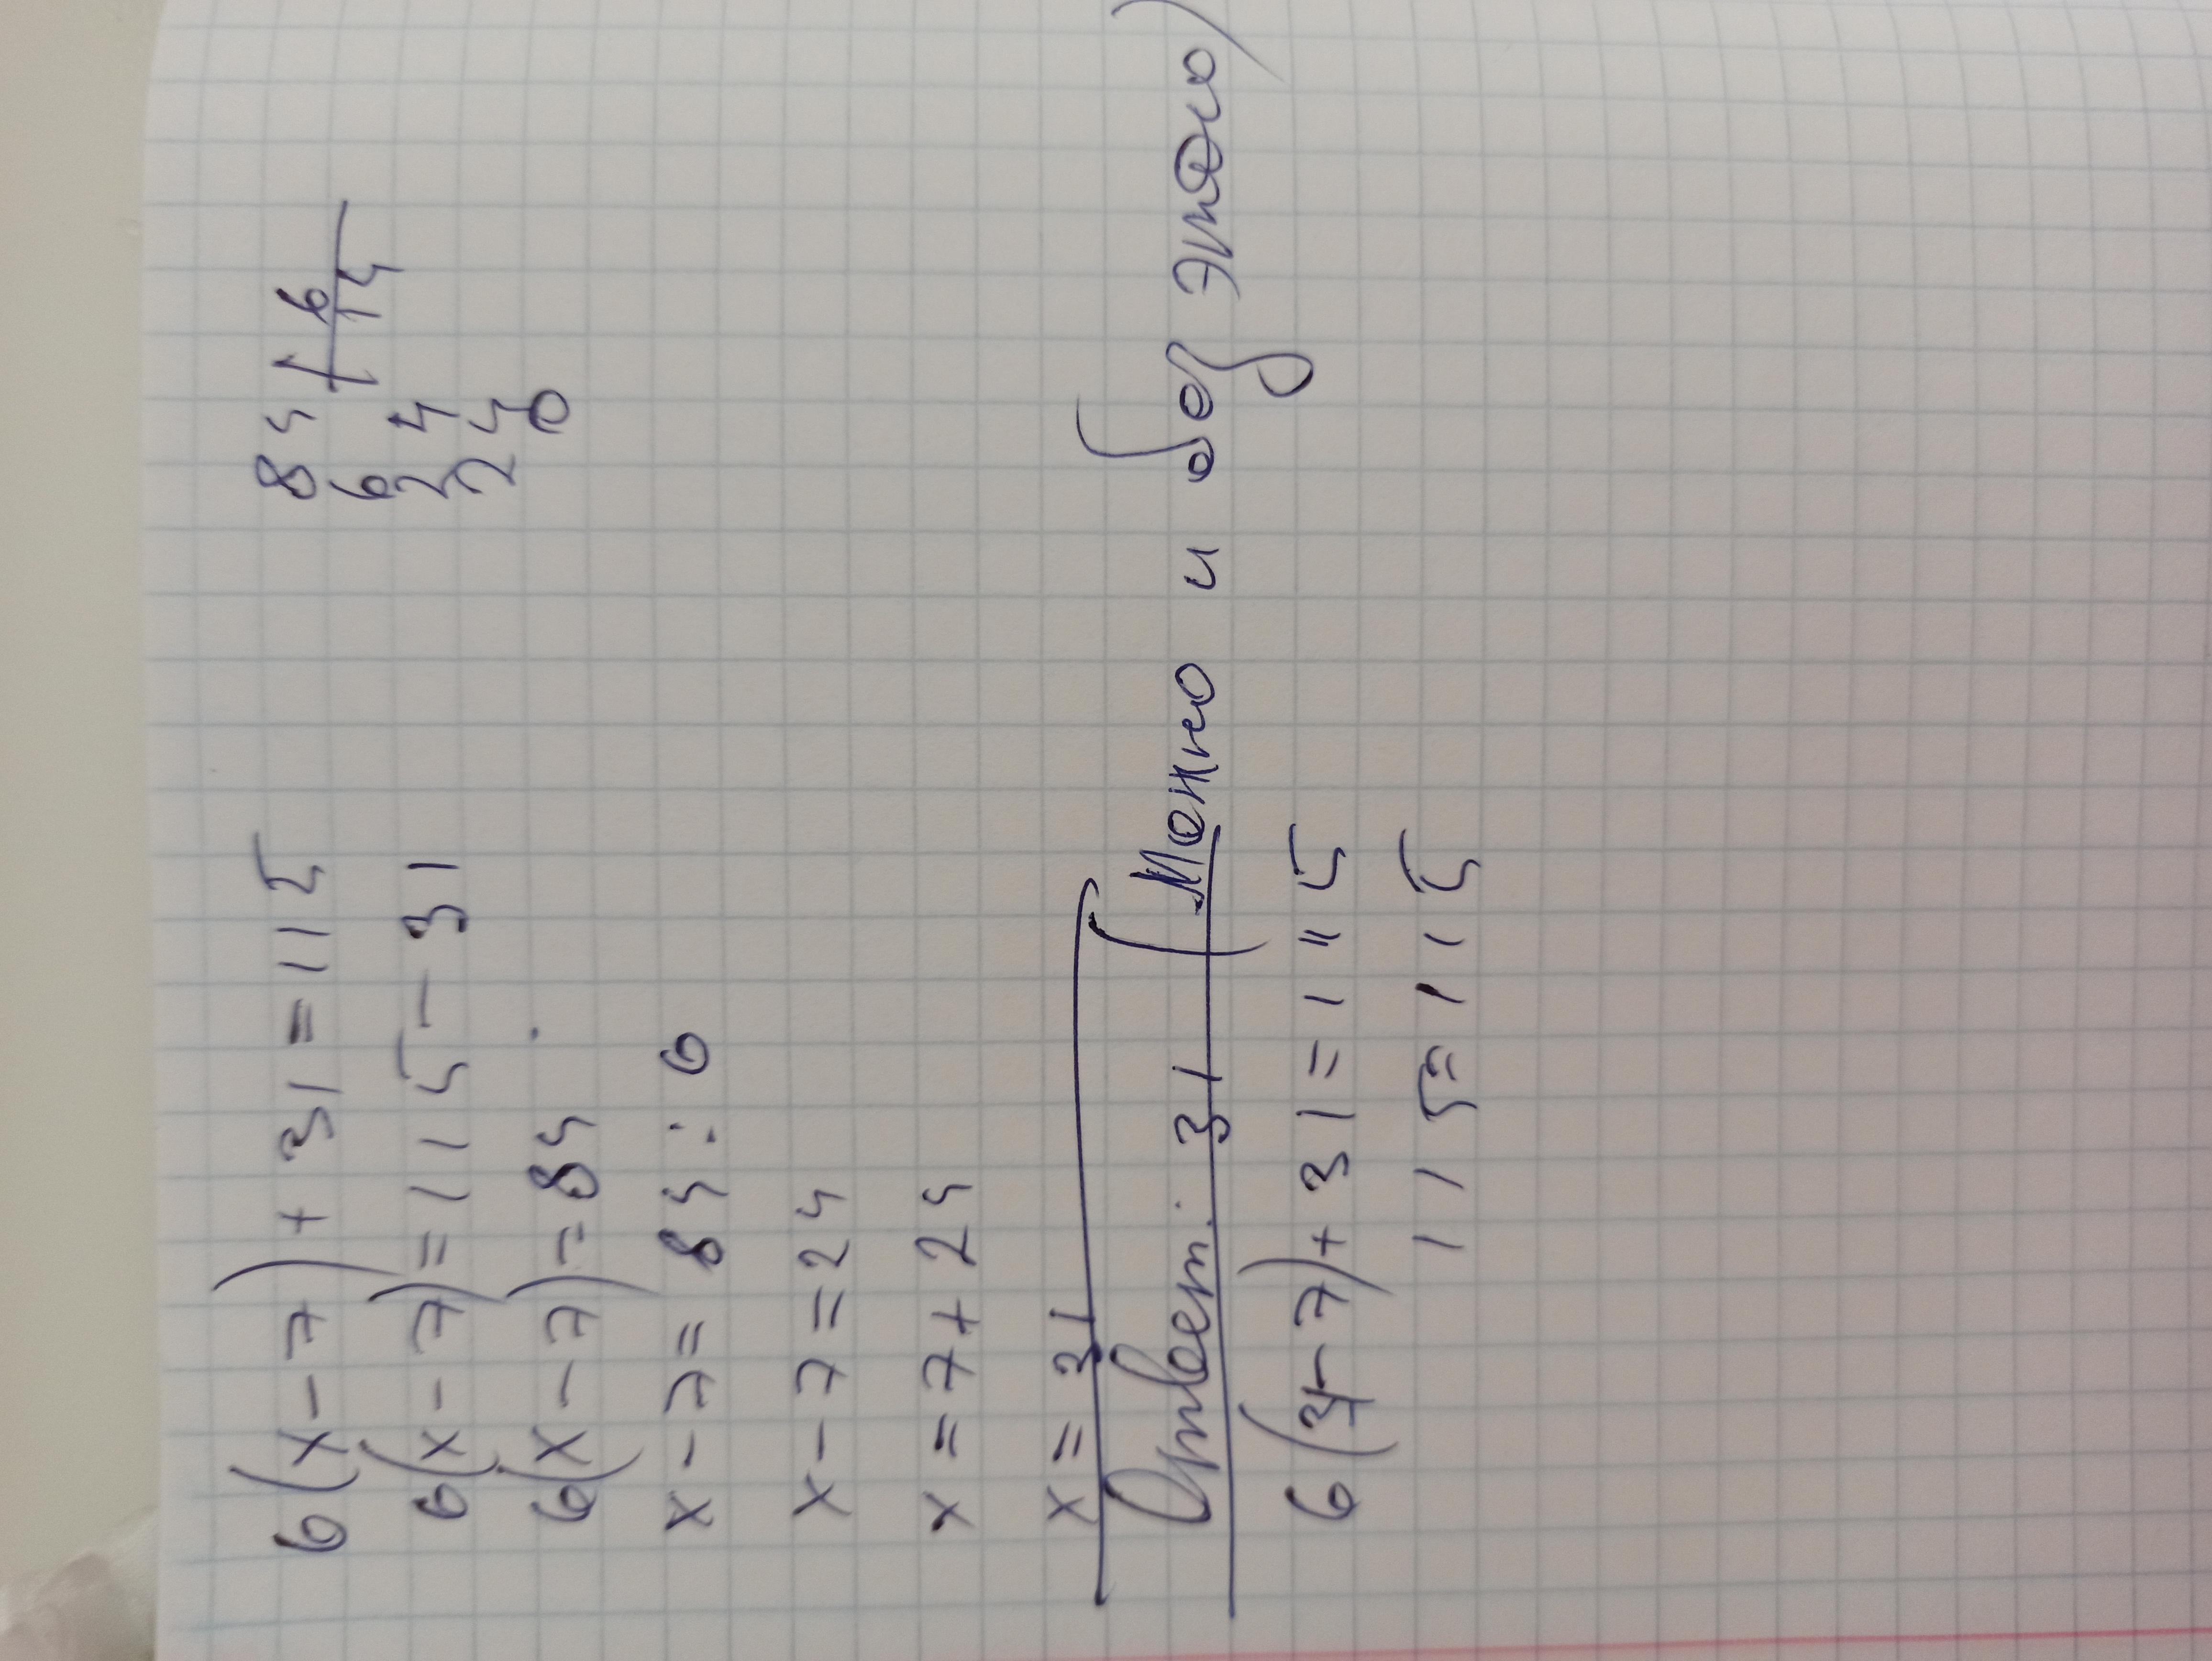 6(x-7)+31=115
6(x-7)=115-31
6(x-7)=84
x-7=84:6
x-7=24
x=7+24
x=31
Ответ: 31 (Можно и без этого)
6(31-7)+31=115
115=115
84 6
6 14
24
24
0